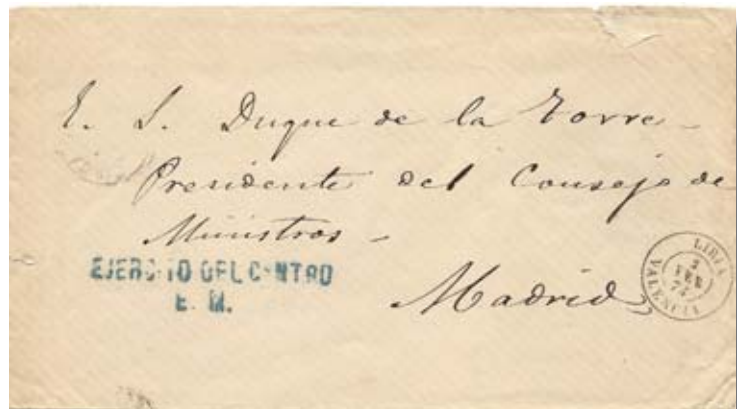 E. S. Duque de la Torre -
Presidente del Consejo de
Ministros -
Madrid
EJERCITO DEL CENTRO
E. M.
LIRIA
2
FEB
74
VALENCIA